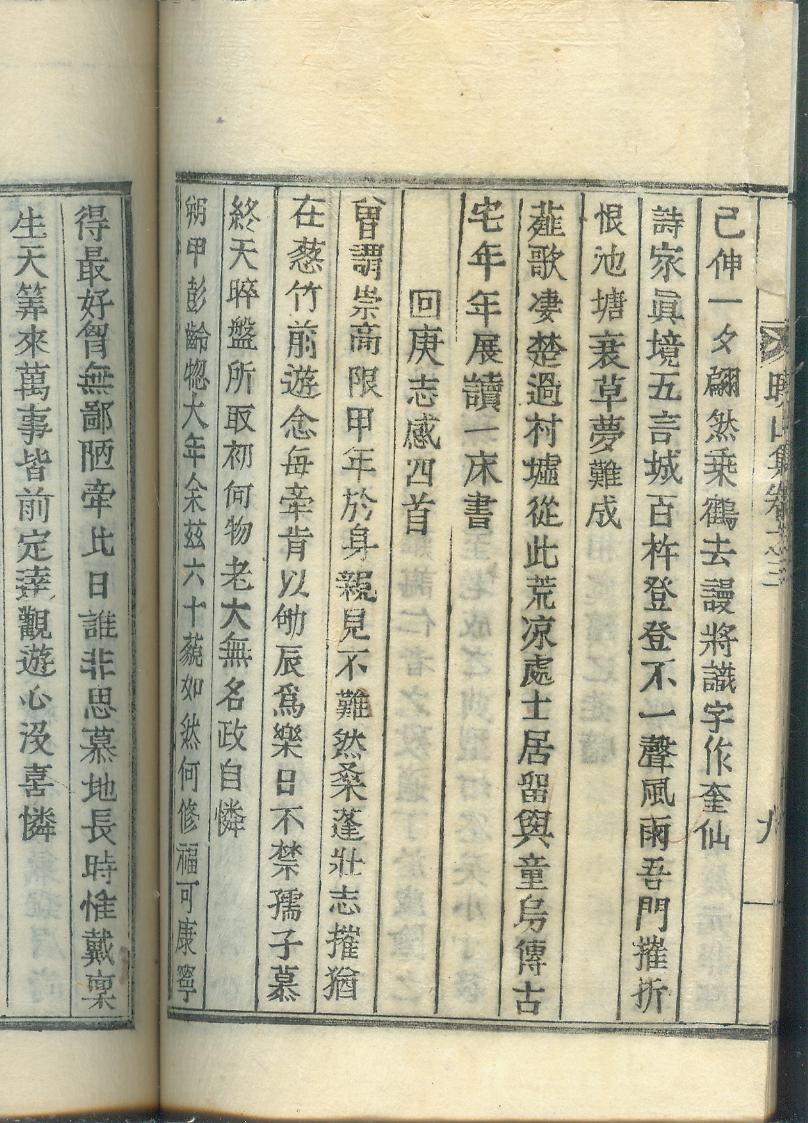 曉山集卷之三
九
己伸一夕翩然乗鶴去謾將識字作奎仙
詩家眞境五言城百杵登登不一聲風雨吾門摧折
恨池塘衰草夢難成
薤歌凄楚過村墟從此荒凉處士居留與童烏傳古
宅年年展讀一床書
回庚志感四首
曾謂崇高限甲年於身親見不難然桑蓬壯志摧猶
在葱竹前遊念每牽肯以劬辰爲樂日不禁孺子慕
終天晬盤所取初何物老大無名政自憐
朔甲彭齡惚大年余玆六十藐如然何修福可康寧
得最好胷無鄙陋牽比日誰非思慕地長時惟戴稟
生天筭來萬事皆前定達觀遊心沒喜憐